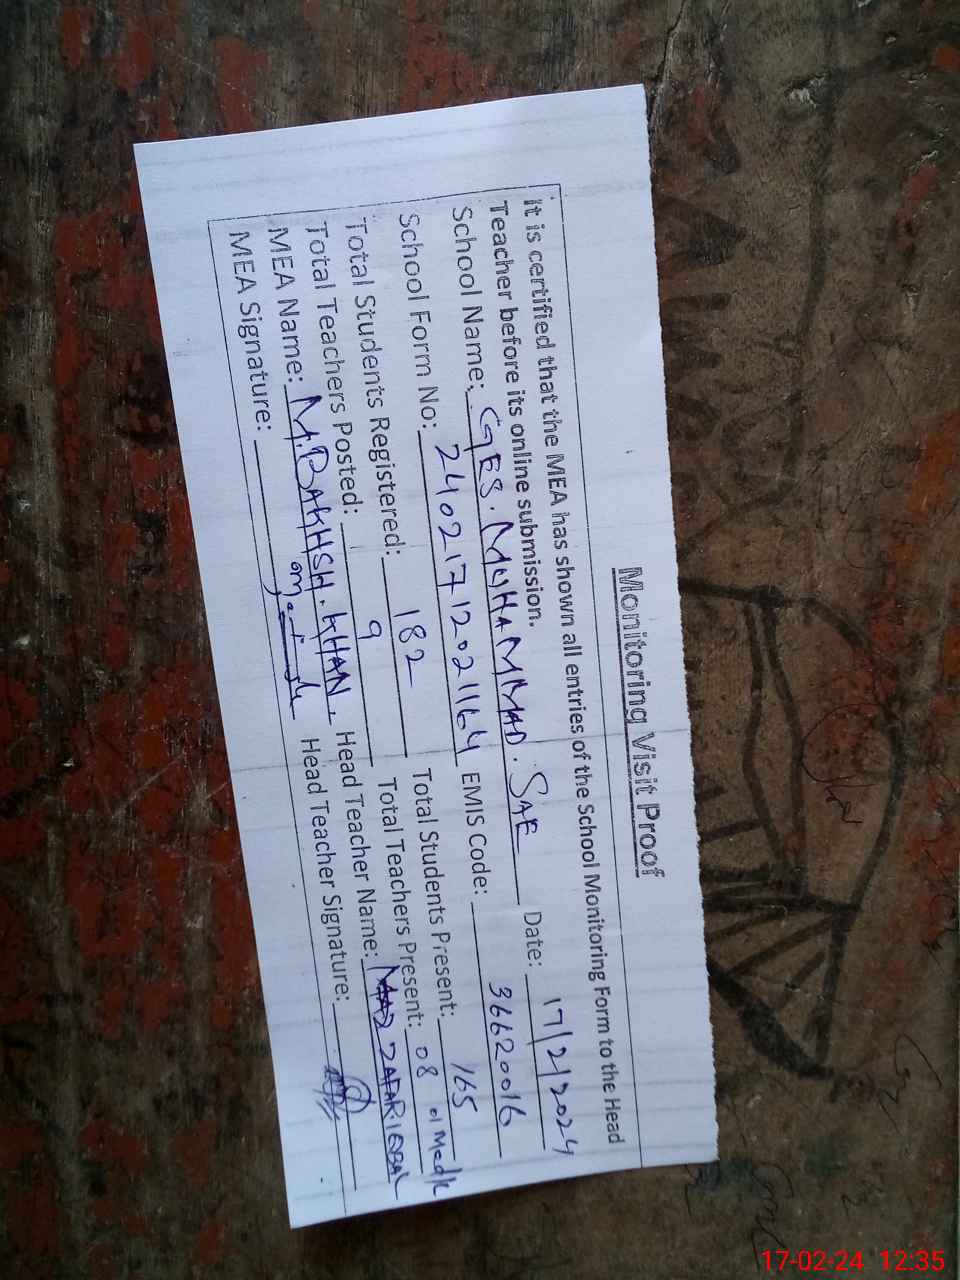 Monitoring Visit Proof
It is certified that the MEA has shown all entries of the School Monitoring Form to the Head
Teacher before its online submission.
School Name: GES. MUHAMMAD. SAE Date: 17/2/2024
School Form No: 24021712021164 EMIS Code: 36620016
Total Students Registered: 182 Total Students Present: 165
Total Teachers Posted: 9 Total Teachers Present: 08 01 Medk
MEA Name: M.BAKHSH.KHAN Head Teacher Name: ZAFAR.IQBAL
MEA Signature: Head Teacher Signature:
17-02-24 12:35